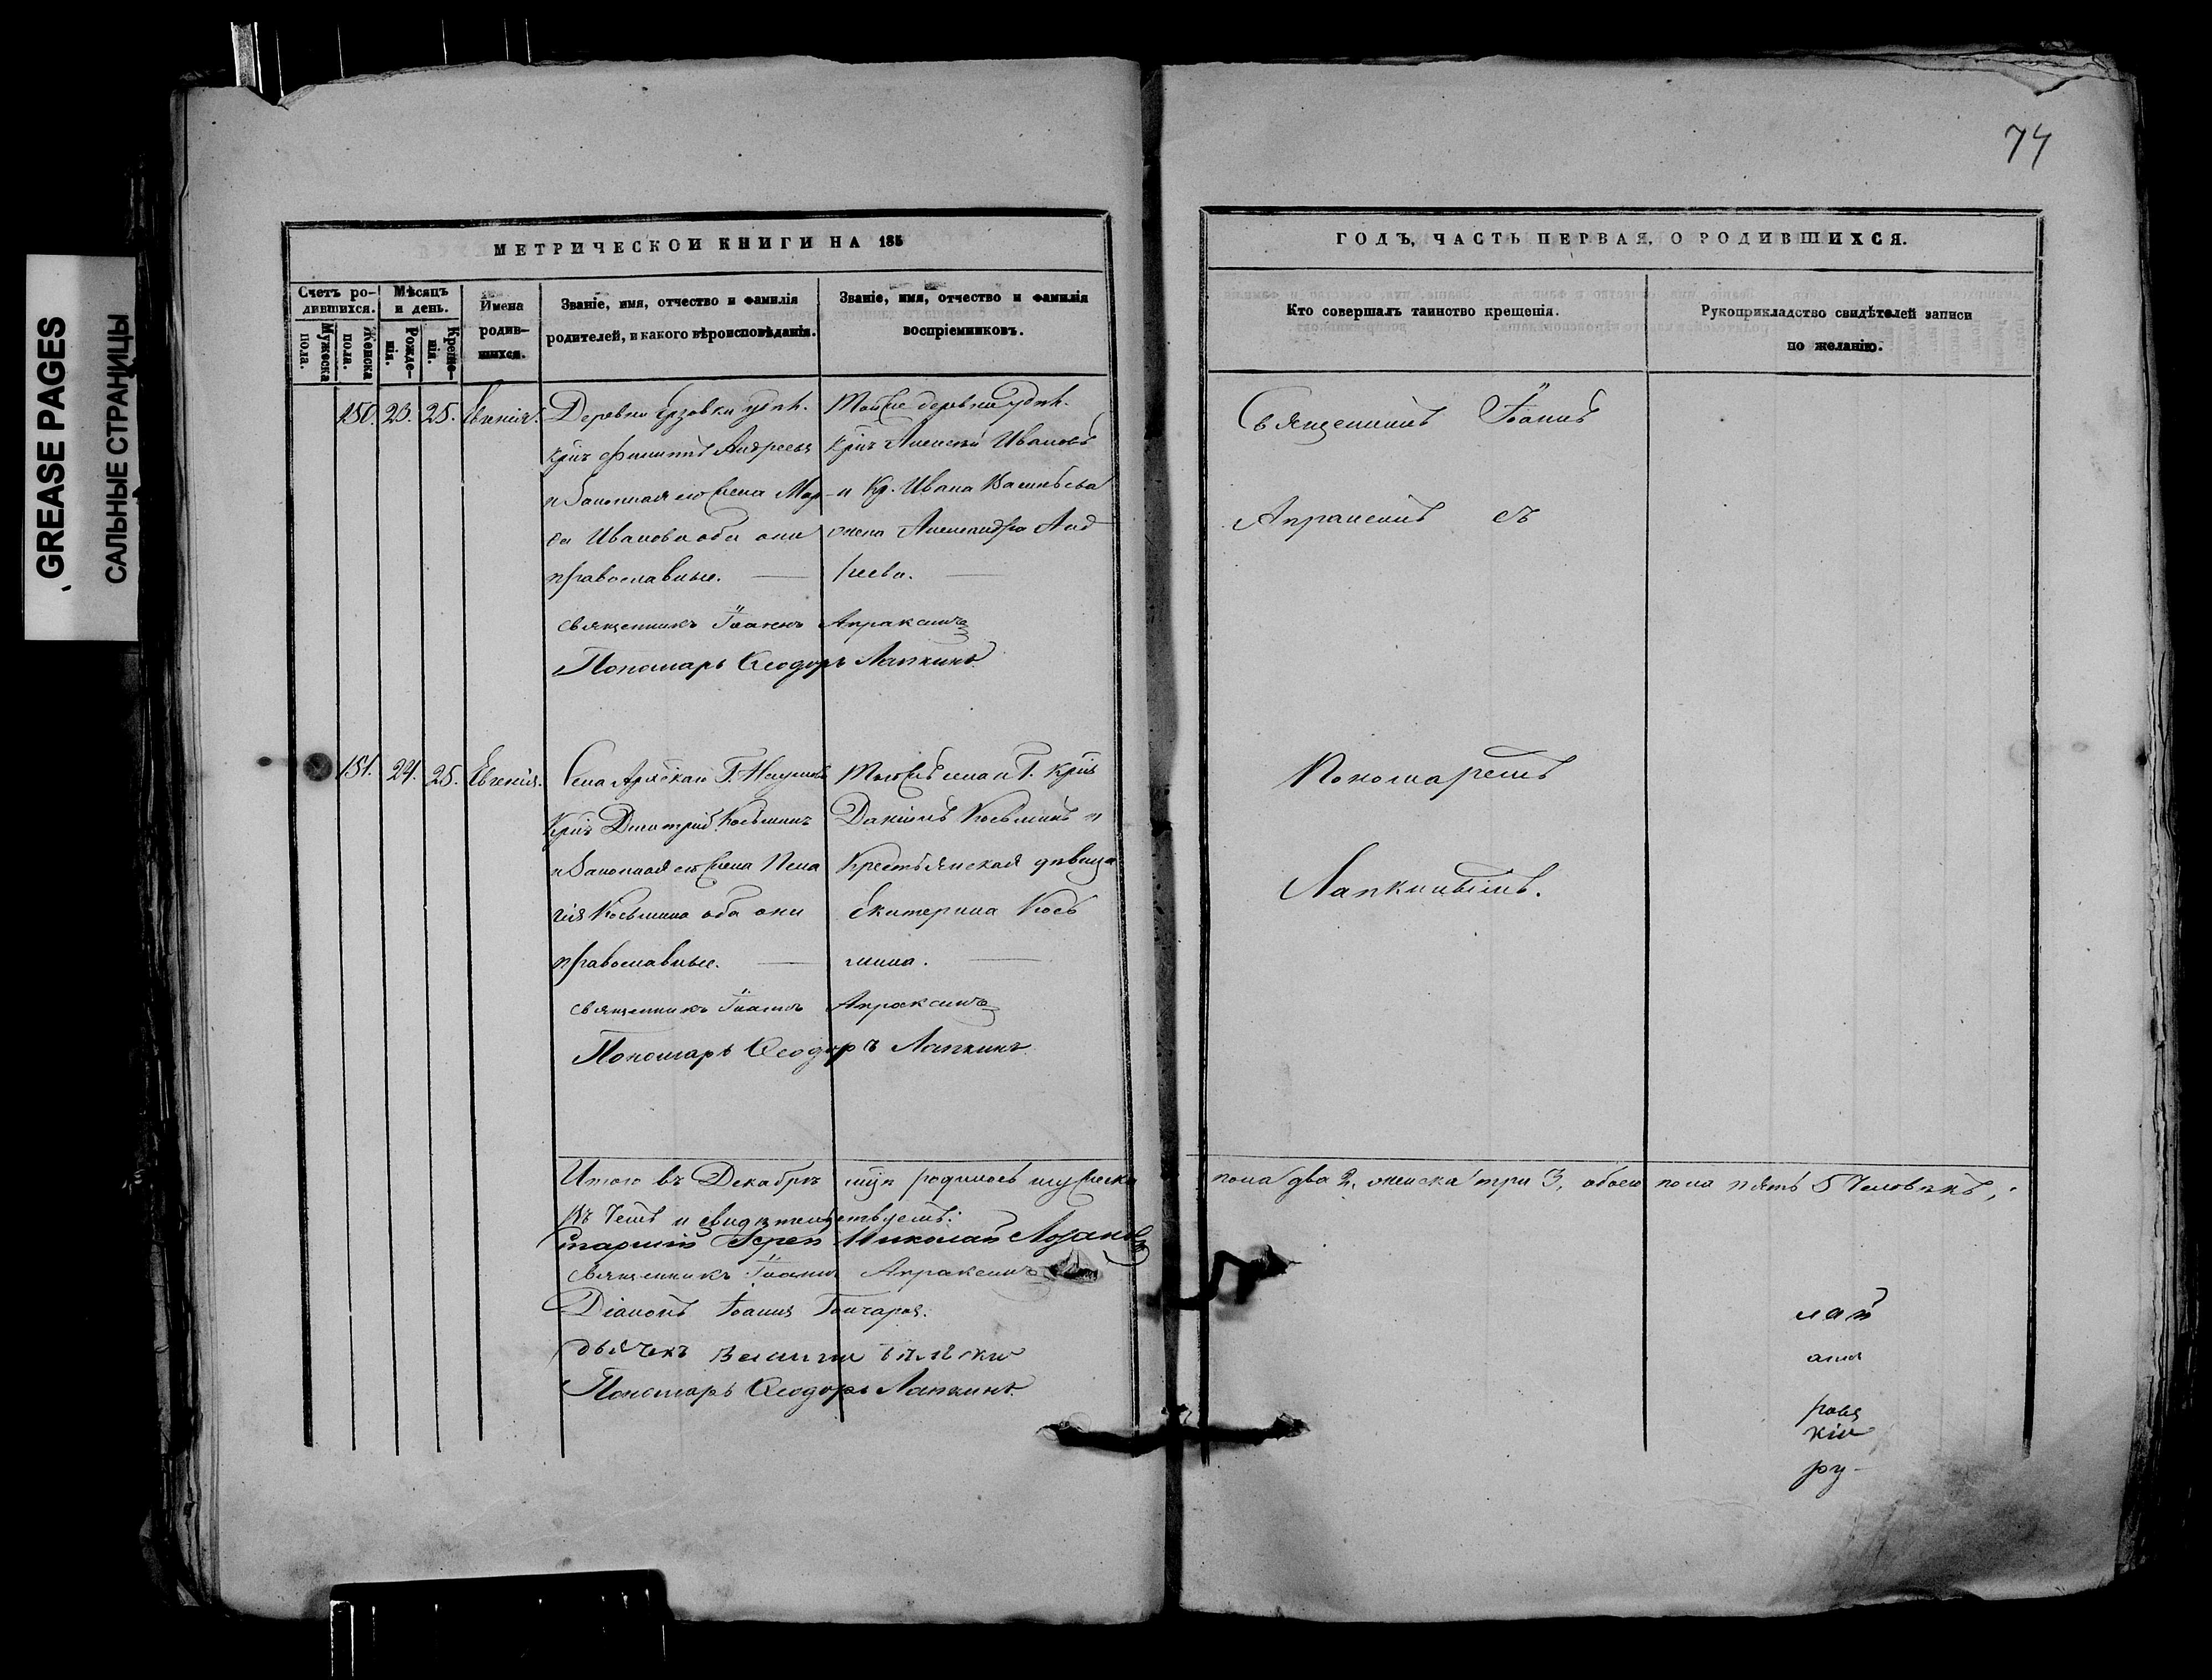 GREASE PAGES
САЛЬНЫЕ СТРАНИЦЫ
74
МЕТРИЧЕСКОЙ КНИГИ НА 185
Счетъ родившихся.
Мужеска пола.
Женска пола.
Мѣсяцъ и день.
Рожденія.
Крещенія.
Имена родившихся.
Званіе, имя, отчество и фамилія
родителей, и какого вѣроисповѣданія.
Званіе, имя, отчество и фамилія
воспріемниковъ.
150. 23. 25. Евгенія.
Деревни удѣл.
Крнъ Филиппъ Андреевъ
и законная его жена Мар-
Иванова оба они
православные.
Тойже деревни удѣл.
Крнъ Алексѣй Ивановъ
и Кр. Ивана Васильева
жена Александра Анд
реева.
Священникъ Іоаннъ Апраксинъ
Пономарь Ѳеодоръ Лапкинъ
151. 24. 25. Евгенія.
Села Г.
Крнъ Дмитрій Косьминъ
и законная его жена Пела
гія Косьмина оба они
православные.
Тогожъ села и Г. Крнъ
Даніилъ Косьминъ и
Крестьянская дѣвица
Екатерина Кось
мина.
Священникъ Іоаннъ Апраксинъ
Пономарь Ѳеодоръ Лапкинъ
Итого въ Декабрѣ родилось мужеска
въ чемъ и свидѣтельствуемъ:
Іерей Николай
Священникъ Іоаннъ Апраксинъ
Діаконъ Іоаннъ Гончаровъ.
Дьячекъ
Пономарь Ѳеодоръ Лапкинъ
ГОДЪ, ЧАСТЬ ПЕРВАЯ, О РОДИВШИХСЯ.
Кто совершалъ таинство крещенія.
Рукоприкладство свидѣтелей записи
по желанію.
Священникъ Іоаннъ
Апраксинъ съ
Пономаремъ
Лапкинымъ.
пола два 2, женска три 3, обоего пола пять 5 человѣкъ,
лай
ровъ
кій
ру-